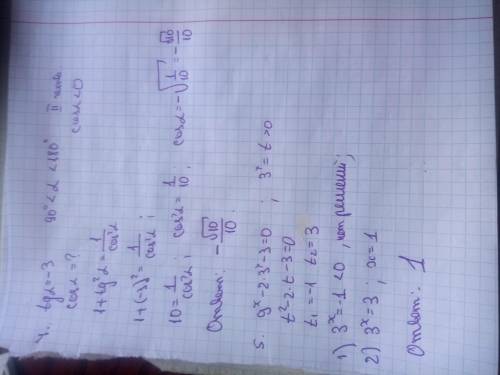 4. tgα=-3 90°<α<180° II четв.
cosα=? cosα<0
1+tg²α=1/cos²α
1+(-3)²=1/cos²α;
10=1/cos²α; cos²α=1/10; cosα=-√(1/10)=-√10/10
Ответ: -√10/10.
5. 9ˣ-2·3ˣ-3=0; 3ˣ=t>0
t²-2·t-3=0
t₁=-1 t₂=3
1) 3ˣ=-1<0, нет решений;
2) 3ˣ=3; x=1
Ответ: 1